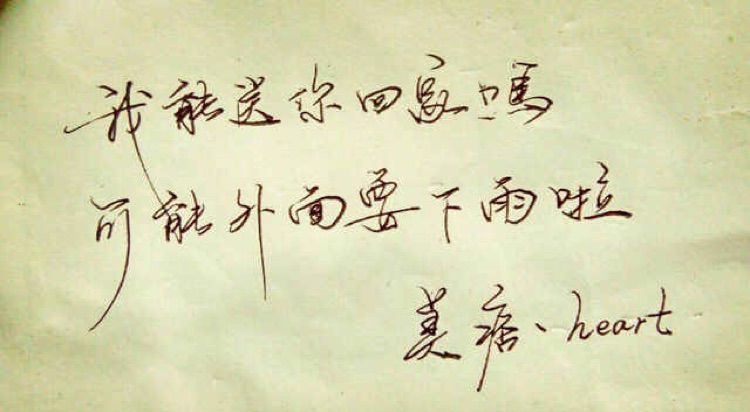 我能送你回家嗎
可能外面要下雨啦
美痞、heart